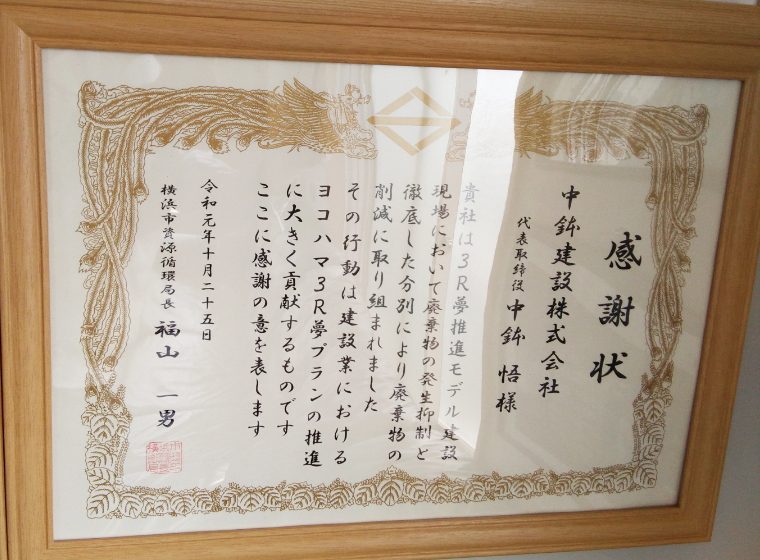 感謝状
中鉢建設株式会社
代表取締役 中鉢 悟 様
貴社は3R夢推進モデル建設
現場において廃棄物の発生抑制と
徹底した分別により廃棄物の
削減に取り組まれました
その行動は建設業における
ヨコハマ3R夢プランの推進
に大きく貢献するものです
ここに感謝の意を表します
令和元年十月二十五日
横浜市資源循環局長 福山 一男